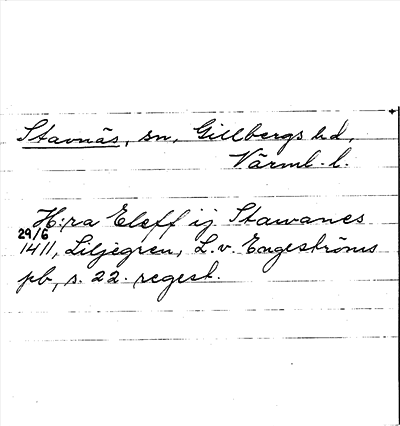 Stavnäs, sn, Gillbergs hd,
Värml. l.
H:ra Eleff ij Stawanes
29/6
1411, Liljegren, L. v. Engeströms
pb, s. 22. regest.